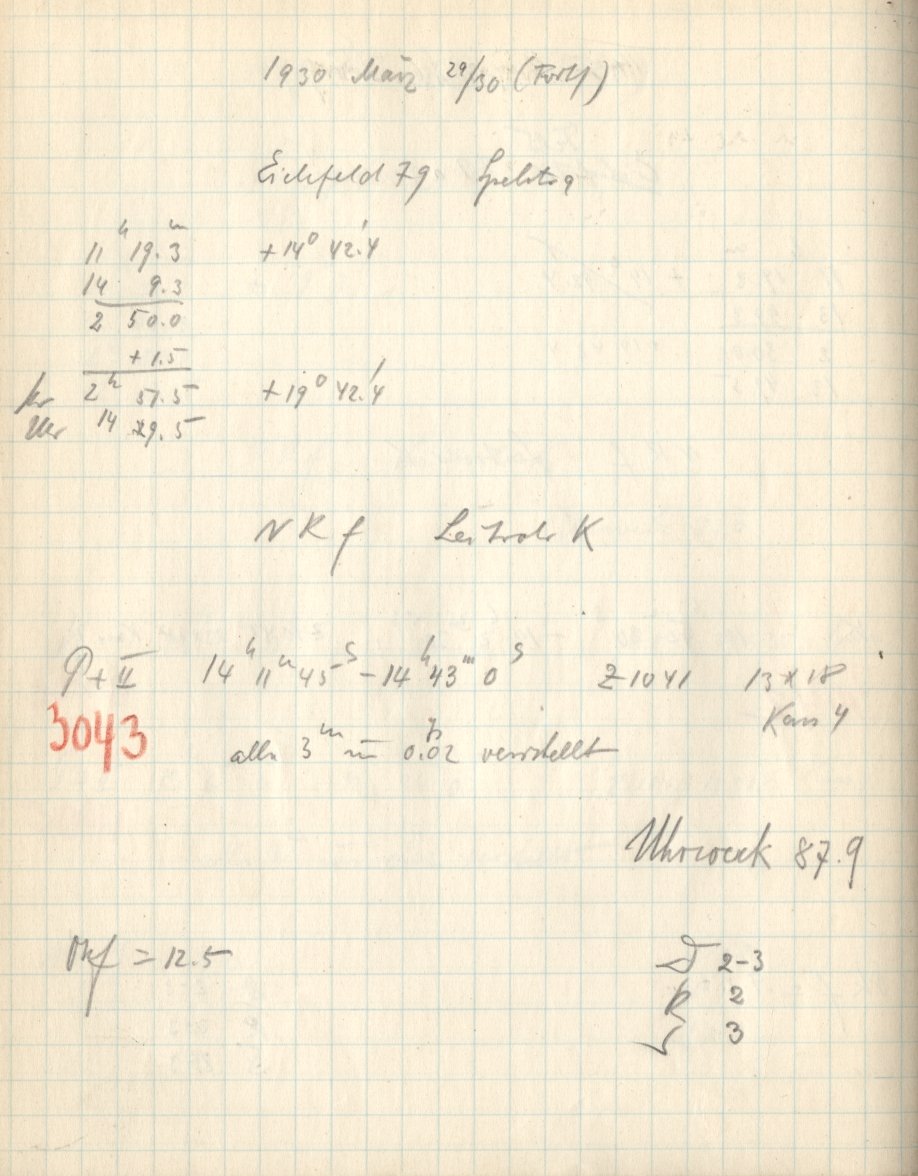 1930 März 29/30 (Forts)
Eichfeld 79
11ʰ 19.ᵐ3 +14° 42.'4
14 9.3
2 50.0
+ 1.5
2ʰ 51.5 +19° 42.'4
Uhr 14 9.5
N K f Leitrohr K
P + II 14ʰ 11ᵐ 45ˢ – 14ʰ 43ᵐ 0ˢ Z 1041 13 x 18
3043 Kass 4
alle 3ᵐ um 0.02 verstellt
Uhrwerk 87.9
Okf = 12.5
D 2–3
R 2
S 3